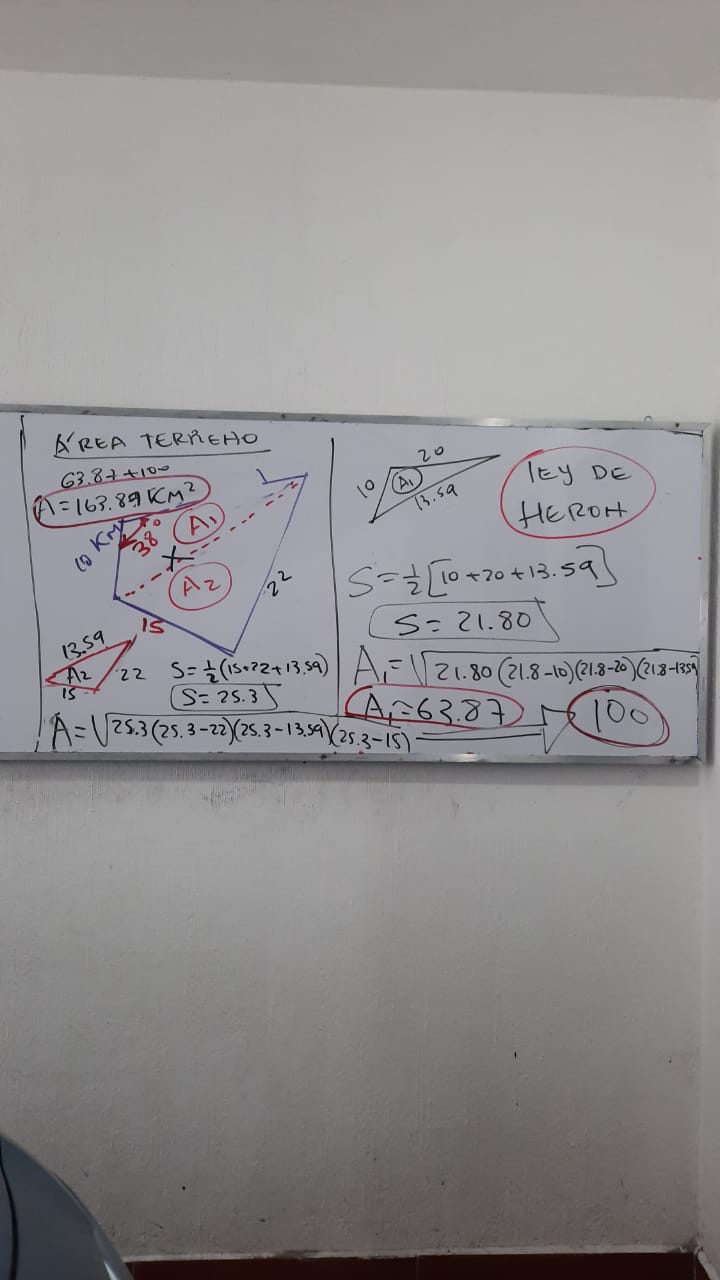 ÁREA TERREHO
63.87+100
A=163.89 KM²
10 KM
38
A1
X
A2
22
15
13.59
A2
22
15
S=½(15+22+13.59)
S=25.3
A=√25.3(25.3-22)(25.3-13.59)(25.3-15)
20
10
A1
13.59
LEY DE
HEROH
S=½[10+20+13.59]
S=21.80
A1=√21.80(21.8-10)(21.8-20)(21.8-1359
A1=63.87
100